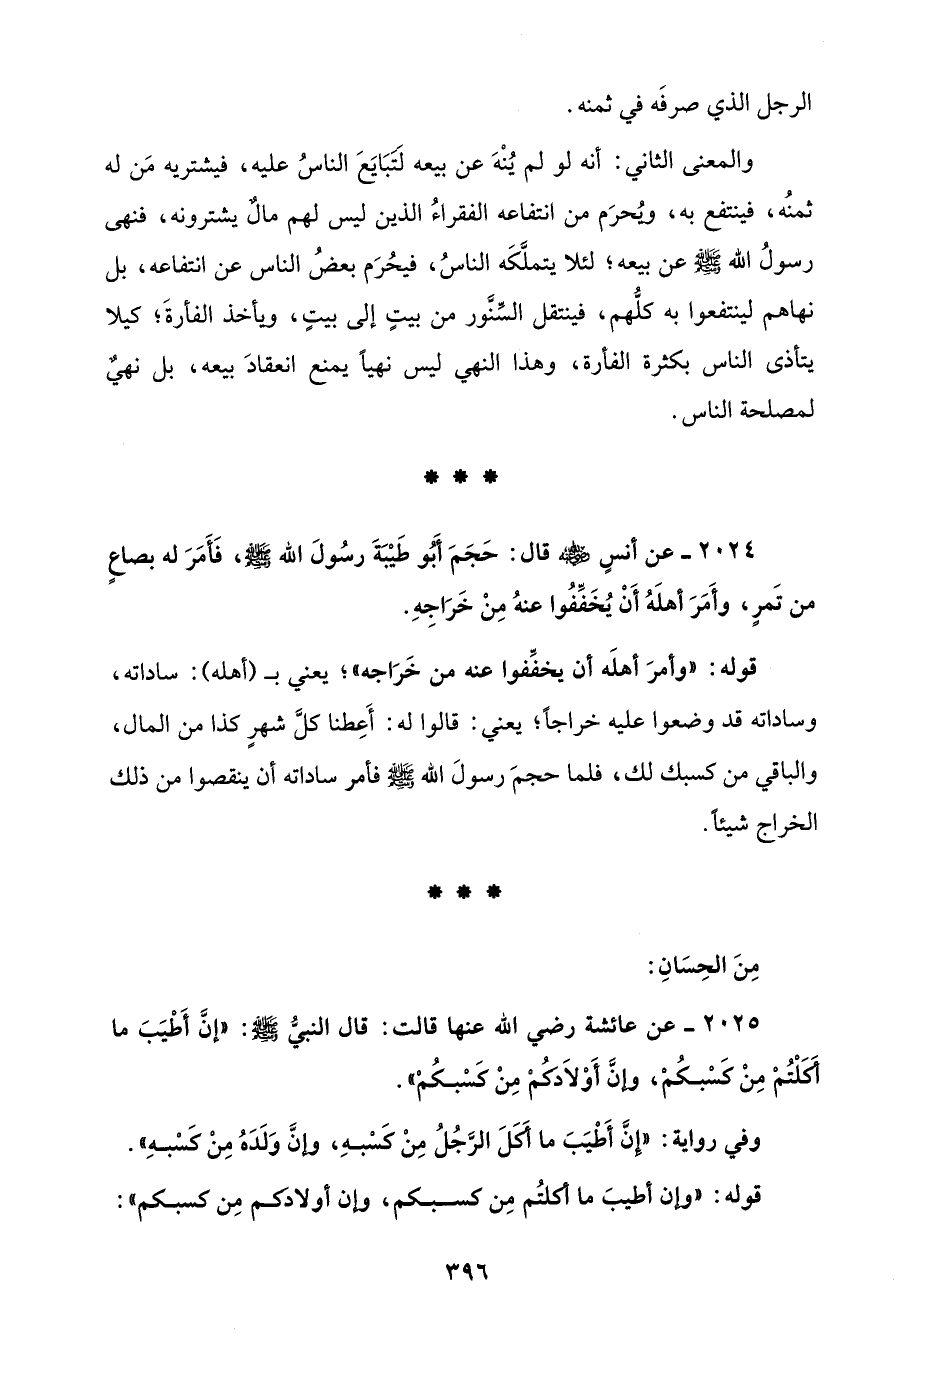 الرجل الذي صرفَه في ثمنه.
والمعنى الثاني: أنه لو لم يُنْهَ عن بيعه لَتَبَايَعَ الناسُ عليه، فيشتريه مَن له
ثمنُه، فينتفع به، ويُحرَم من انتفاعه الفقراءُ الذين ليس لهم مالٌ يشترونه، فنهى
رسولُ الله ﷺ عن بيعه؛ لئلا يتملَّكَه الناسُ، فيحُرَم بعضُ الناس عن انتفاعه، بل
نهاهم لينتفعوا به كلُّهم، فينتقل السِّنَّور من بيتٍ إلى بيتٍ، ويأخذ الفأرةَ؛ كيلا
يتأذى الناس بكثرة الفأرة، وهذا النهي ليس نهياً يمنع انعقادَ بيعه، بل نهيٌ
لمصلحة الناس.
* * *
٢٠٢٤ ـ عن أنسٍ ﷺ قال: حَجَمَ أَبُو طَيْبَةَ رسُولَ الله ﷺ، فَأَمَرَ له بصاعٍ
من تَمرٍ، وأَمَرَ أهلَهُ أَنْ يُخَفِّفُوا عنهُ مِنْ خَرَاجِهِ.
قوله: «وأمرَ أهلَه أن يخفِّفوا عنه من خَرَاجه»؛ يعني بـ (أهله): ساداته،
وساداته قد وضعوا عليه خراجاً؛ يعني: قالوا له: أَعِطنا كلَّ شهرٍ كذا من المال،
والباقي من كسبك لك، فلما حجمَ رسولَ الله ﷺ فأمر ساداته أن ينقصوا من ذلك
الخراج شيئاً.
* * *
مِنَ الحِسَانِ:
٢٠٢٥ ـ عن عائشة رضي الله عنها قالت: قال النبيُّ ﷺ: «إنَّ أَطْيَبَ ما
أَكَلْتُمْ مِنْ كَسْبكُمْ، وإنَّ أَوْلاَدَكُمْ مِنْ كَسْبكُمْ».
وفي رواية: «إِنَّ أَطْيَبَ ما أَكَلَ الرَّجُلُ مِنْ كَسْبهِ، وإنَّ وَلَدَهُ مِنْ كَسْبهِ».
قوله: «وإن أطيبَ ما أكلتُم مِن كسبكم، وإن أولادكم مِن كسبكم»:
٣٩٦